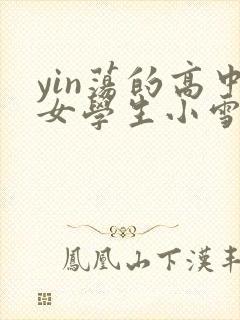 yin蕩的高中
女學生小雪
鳳凰山下漢丰